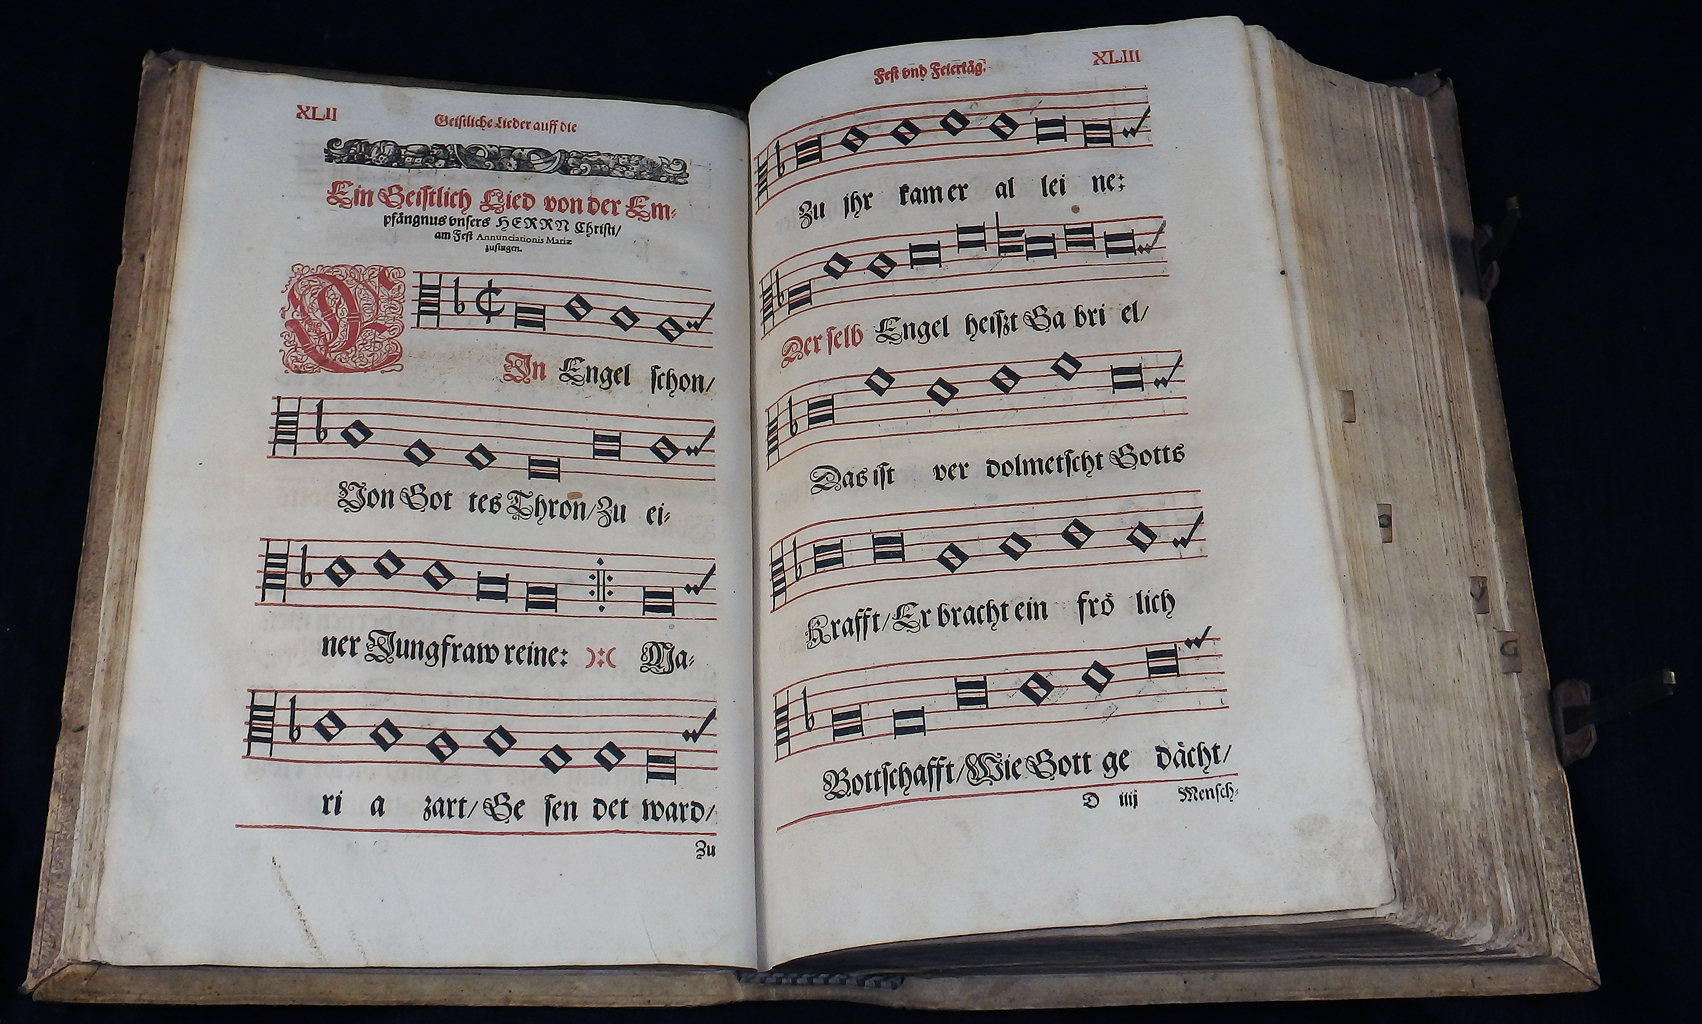 XLII
Geistliche Lieder auff die
Ein Geistlich Lied von der Em-
pfängnus vnsers HERRN Christi/
am Fest Annunciationis Mariæ
zusingen.
EIn Engel schon/
Von Got tes Thron/Zu ei-
ner Jungfraw reine: Ma-
ri a zart/Ge sen det ward/
Zu
Fest vnd Feiertäg.
XLIII
Zu jhr kam er al lei ne:
Der selb Engel heißt Ga bri el/
Das ist ver dolmetscht Gotts
Krafft/Er bracht ein frö lich
Bottschafft/Wie Gott ge dächt/
D iiij
Mensch-